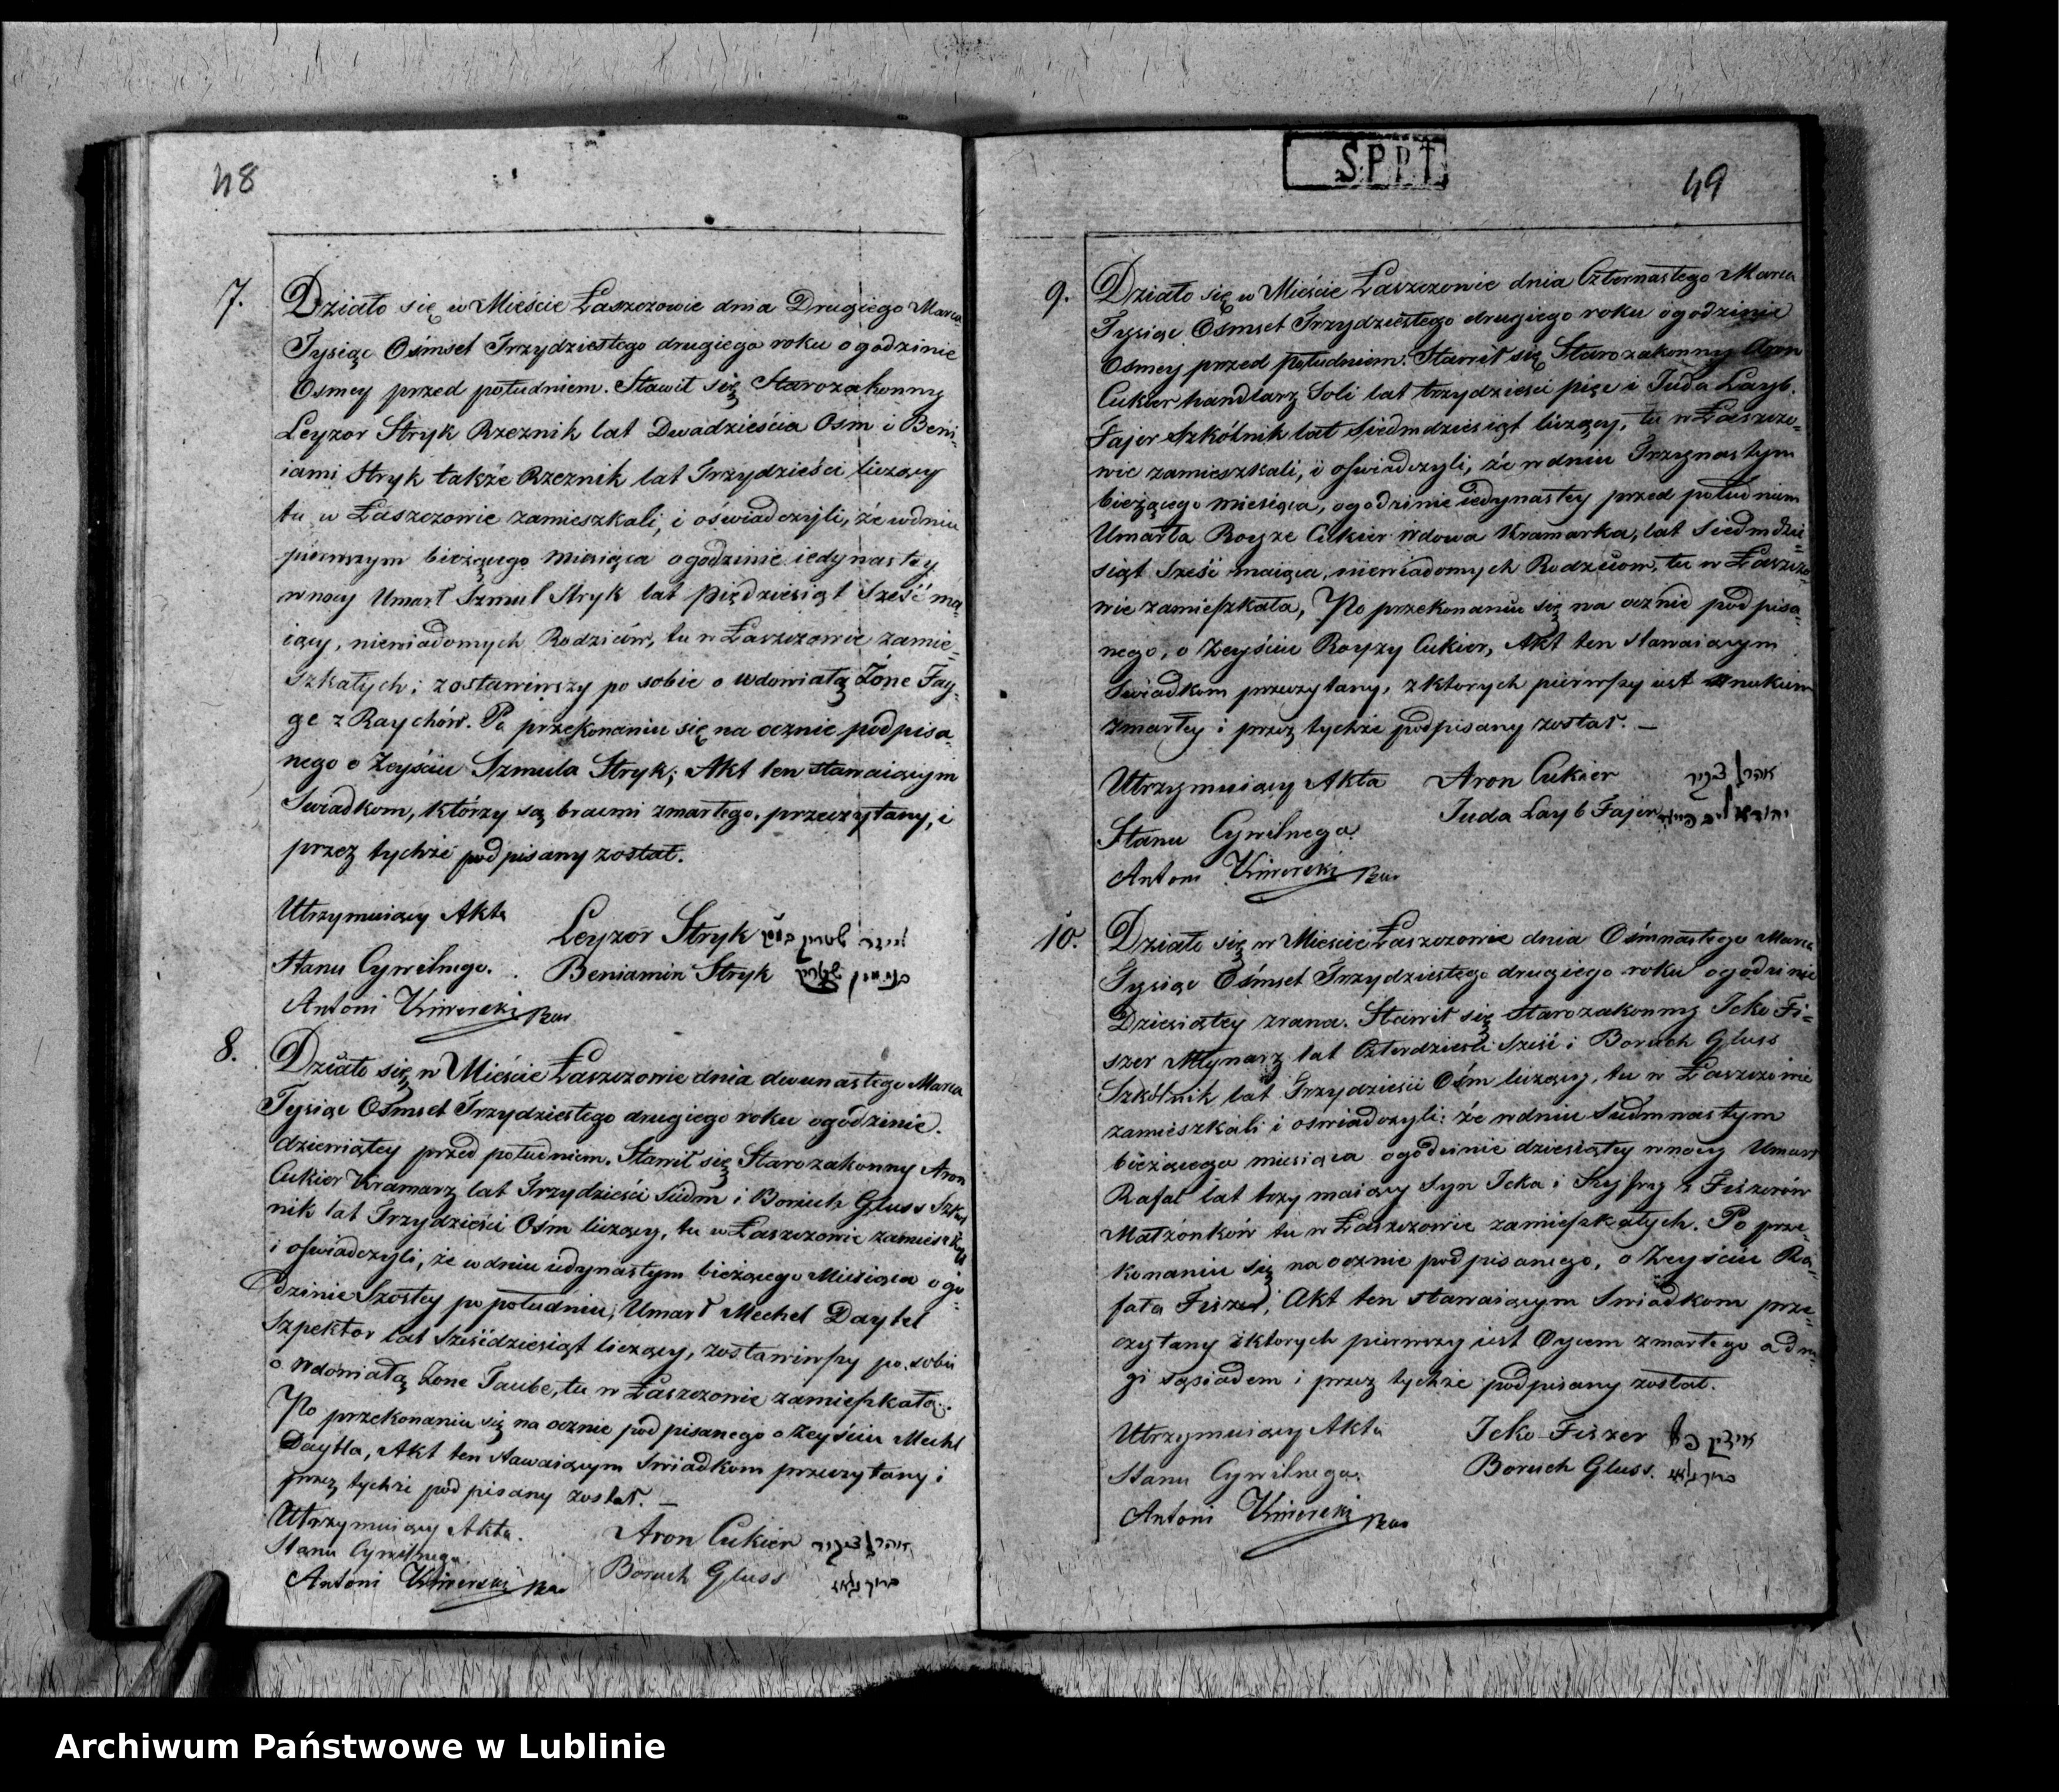 48
7.
Działo się w Mieście Łaszczowie dnia Drugiego Marca
Tysiąc Ośmset Trzydziestego drugiego roku o godzinie
Osmey przed południem. Stawił się Starozakonny
Leyzor Stryk Rzeznik lat Dwadzieścia Osm i Beni-
iami Stryk także Rzeznik lat Trzydzieści liczący
tu w Łaszczowie zamieszkali, i oświadczyli, że w dniu
pierwszym bieżącego Miesiąca o godzinie iedynastey
w nocy Umarł Szmul Stryk lat Piędziesiąt Sześć ma-
iący, niewiadomych Rodziców, tu w Łaszczowie zamie-
szkałych; zostawiwszy po sobie owdowiałą Żone Fay-
ge z Raychów. Po przekonaniu się na ocznie podpisa-
nego o Zeyściu Szmula Stryk; Akt ten stawaiącym
Swiadkom, którzy są bracmi zmarłego, przeczytany, i
przez tychże podpisany został.
Utrzymuiący Akta
Leyzor Stryk
Stanu Cywilnego.
Beniamin Stryk בנימין שטריק
Antoni
8.
Działo się w Mieście Łaszczowie dnia dwunastego Marca
Tysiąc Ośmset Trzydziestego drugiego roku o godzinie.
dziewiątey przed południem. Stawił się Starozakonny Aron
Cukier Kramarz lat Trzydzieści Siedm i Boruch Gluss Szkol
nik lat Trzydzieści Ośm liczący, tu w Łaszczowie zamieszkali
i oświadczyli, że w dniu iedynastym bieżącego Miesiąca o go-
dzinie Szostey po południu, Umarł Mechel Daytel
Szpektor lat Sześćdziesiąt liczący, zostawiwszy po sobie
owdowiałą Żone Taube, tu w Łaszczowie zamieszkałą.
Po przekonaniu się na ocznie podpisanego o Zeyściu Mechl
Daytla, Akt ten stawaiącym Swiadkom przeczytany i
przez tychże podpisany został. —
Utrzymuiący Akta.
Stanu Cywilnego.
Aron Cukier אהרן צוקיר
Antoni
Boruch Gluss ברוך גלאס
S.P.P.T.
49
9.
Działo się w Mieście Łaszczowie dnia Czternastego Marca
Tysiąc Ośmset Trzydziestego drugiego roku o godzinie
Osmey przed południem. Stawił się Starozakonny Aron
Cukier handlarz Soli lat trzydzieści pięc i Juda Layb.
Fajer Szkólnik lat Siedmdziesiąt liczący, tu w Łaszczo-
wie zamieszkali, i oświadczyli, że w dniu Trzynastym
bieżącego miesiąca, o godzinie iedynastey przed południem
Umarła Royze Cukier wdowa Kramarka, lat Siedmdzie-
siąt Sześć maiąca, niewiadomych Rodziców, tu w Łaszczo-
wie zamieszkała, Po przekonaniu się na ocznie podpisa-
nego, o Zeyściu Royzy Cukier, Akt ten stawaiącym
Swiadkom przeczytany, z ktorych pierwszy iest wnukiem
zmarłey i przez tychże podpisany został. —
Utrzymuiący Akta Aron Cukier אהרן צוקיר
Juda Layb Fajer
Stanu Cywilnego
Antoni
10.
Działo się w Mieście Łaszczowie dnia Ośmnastego Marca
Tysiąc Ośmset Trzydziestego drugiego roku o godzinie
Dziesiątey zrana. Stawił się Starozakonny Icko Fi-
szer Młynarz lat Czterdzieści Sześć i Boruch Gluss
Szkólnik lat Trzydzieści Ośm liczący, tu w Łaszczowie
zamieszkali i oswiadczyli: że w dniu Siedmnastym
bieżącego miesiąca o godzinie dziesiątey w nocy Umarł
Rafał lat trzy maiący Syn Icka i z Fiszerów
Małżonków tu w Łaszczowie zamieszkałych. Po prze-
konaniu się na ocznie podpisanego, o Zeyściu Ra-
fała Fiszer, Akt ten stawaiącym Swiadkom prze-
czytany z ktorych pierwszy iest Oycem zmarłego a dru-
gi sąsiadem i przez tychże podpisany został.
Utrzymuiący Akta
Icko Fiszer
Stanu Cywilnego.
Boruch Gluss. ברוך גלאס
Antoni
Archiwum Państwowe w Lublinie